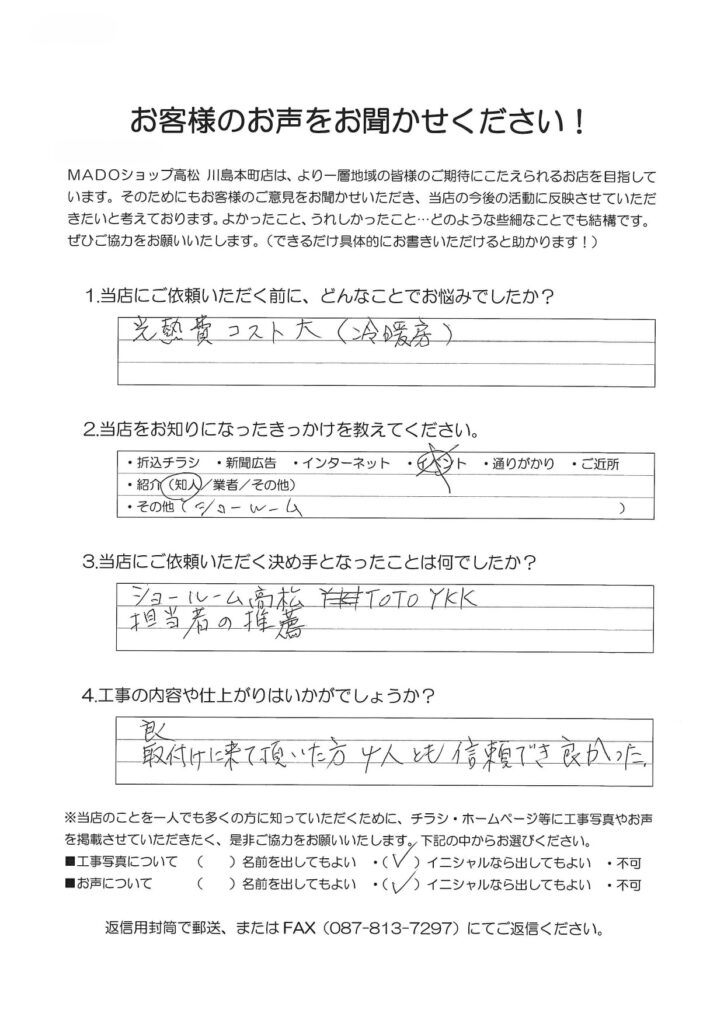 お客様のお声をお聞かせください！
MADOショップ高松 川島本町店は、より一層地域の皆様のご期待にこたえられるお店を目指して
います。そのためにもお客様のご意見をお聞かせいただき、当店の今後の活動に反映させていただ
きたいと考えております。よかったこと、うれしかったこと…どのような些細なことでも結構です。
ぜひご協力をお願いいたします。（できるだけ具体的にお書きいただけると助かります！）
1.当店にご依頼いただく前に、どんなことでお悩みでしたか？
光熱費コスト大（冷暖房）
2.当店をお知りになったきっかけを教えてください。
・折込チラシ ・新聞広告 ・インターネット ・イベント ・通りがかり ・ご近所
・紹介（知人／業者／その他）
・その他（ショールーム ）
3.当店にご依頼いただく決め手となったことは何でしたか？
ショールーム高松 TOTO YKK
担当者の推薦
4.工事の内容や仕上がりはいかがでしょうか？
良
取付けに来て頂いた方4人とも信頼でき良かった。
※当店のことを一人でも多くの方に知っていただくために、チラシ・ホームページ等に工事写真やお声
を掲載させていただきたく、是非ご協力をお願いいたします。下記の中からお選びください。
■工事写真について （ ）名前を出してもよい ・（✓）イニシャルなら出してもよい ・不可
■お声について （ ）名前を出してもよい ・（✓）イニシャルなら出してもよい ・不可
返信用封筒で郵送、またはFAX（087-813-7297）にてご返信ください。